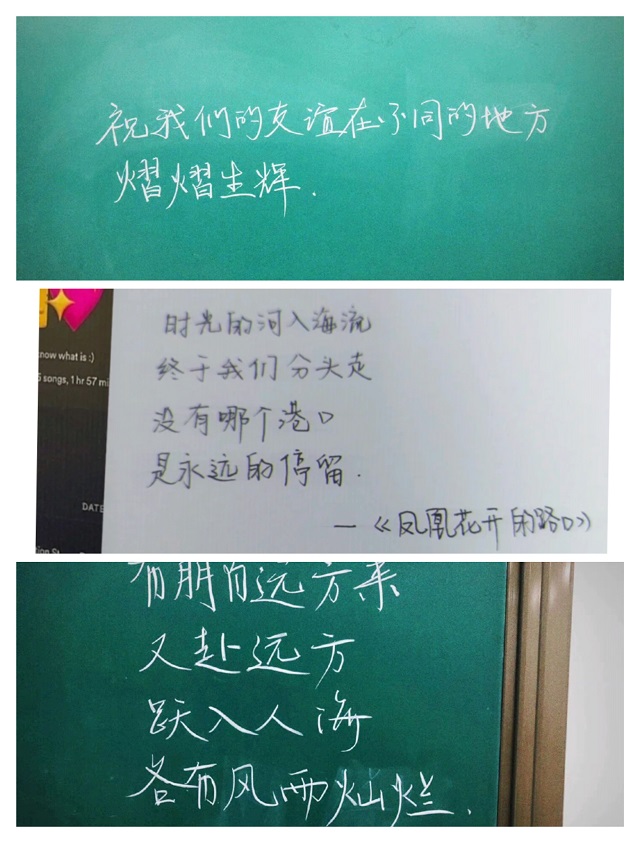 祝我们的友谊在不同的地方
熠熠生辉.
know what is :)
songs, 1 hr 57 mi
DATE
时光的河入海流
终于我们分头走
没有哪个港口
是永远的停留.
—《凤凰花开的路口》
有朋自远方来
又赴远方
跃入人海
各有风雨灿烂.